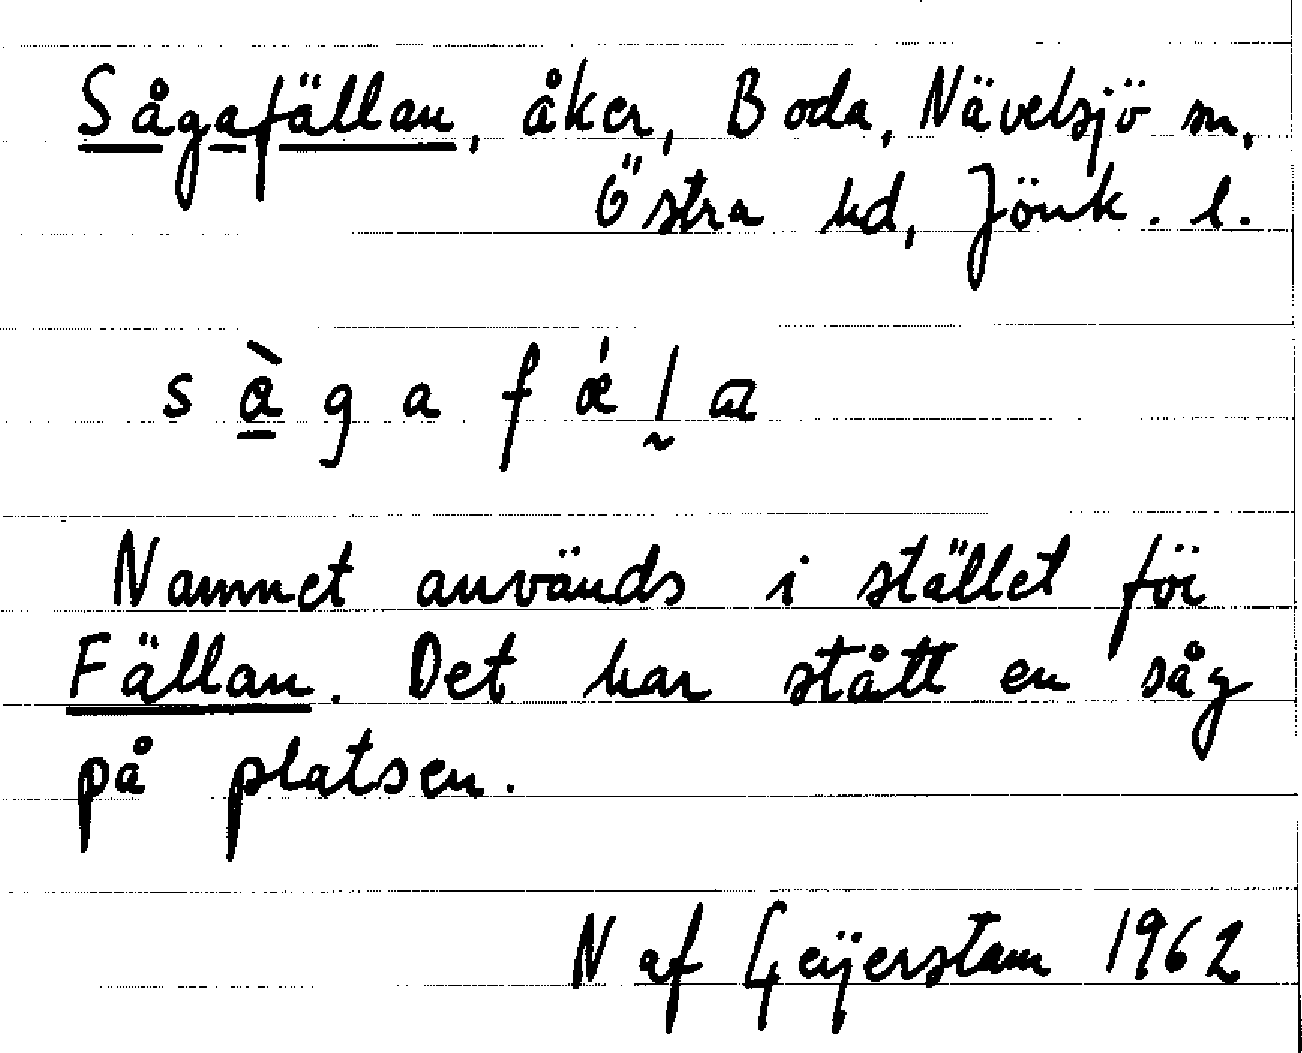 Sågafällan, åker, Boda, Nävelsjö sn,
Östra hd, Jönk. l.
s å̱̀ g a f ǽ l̰ a
Namnet används i stället för
Fällan. Det har stått en såg
på platsen.
N af Geijerstam 1962